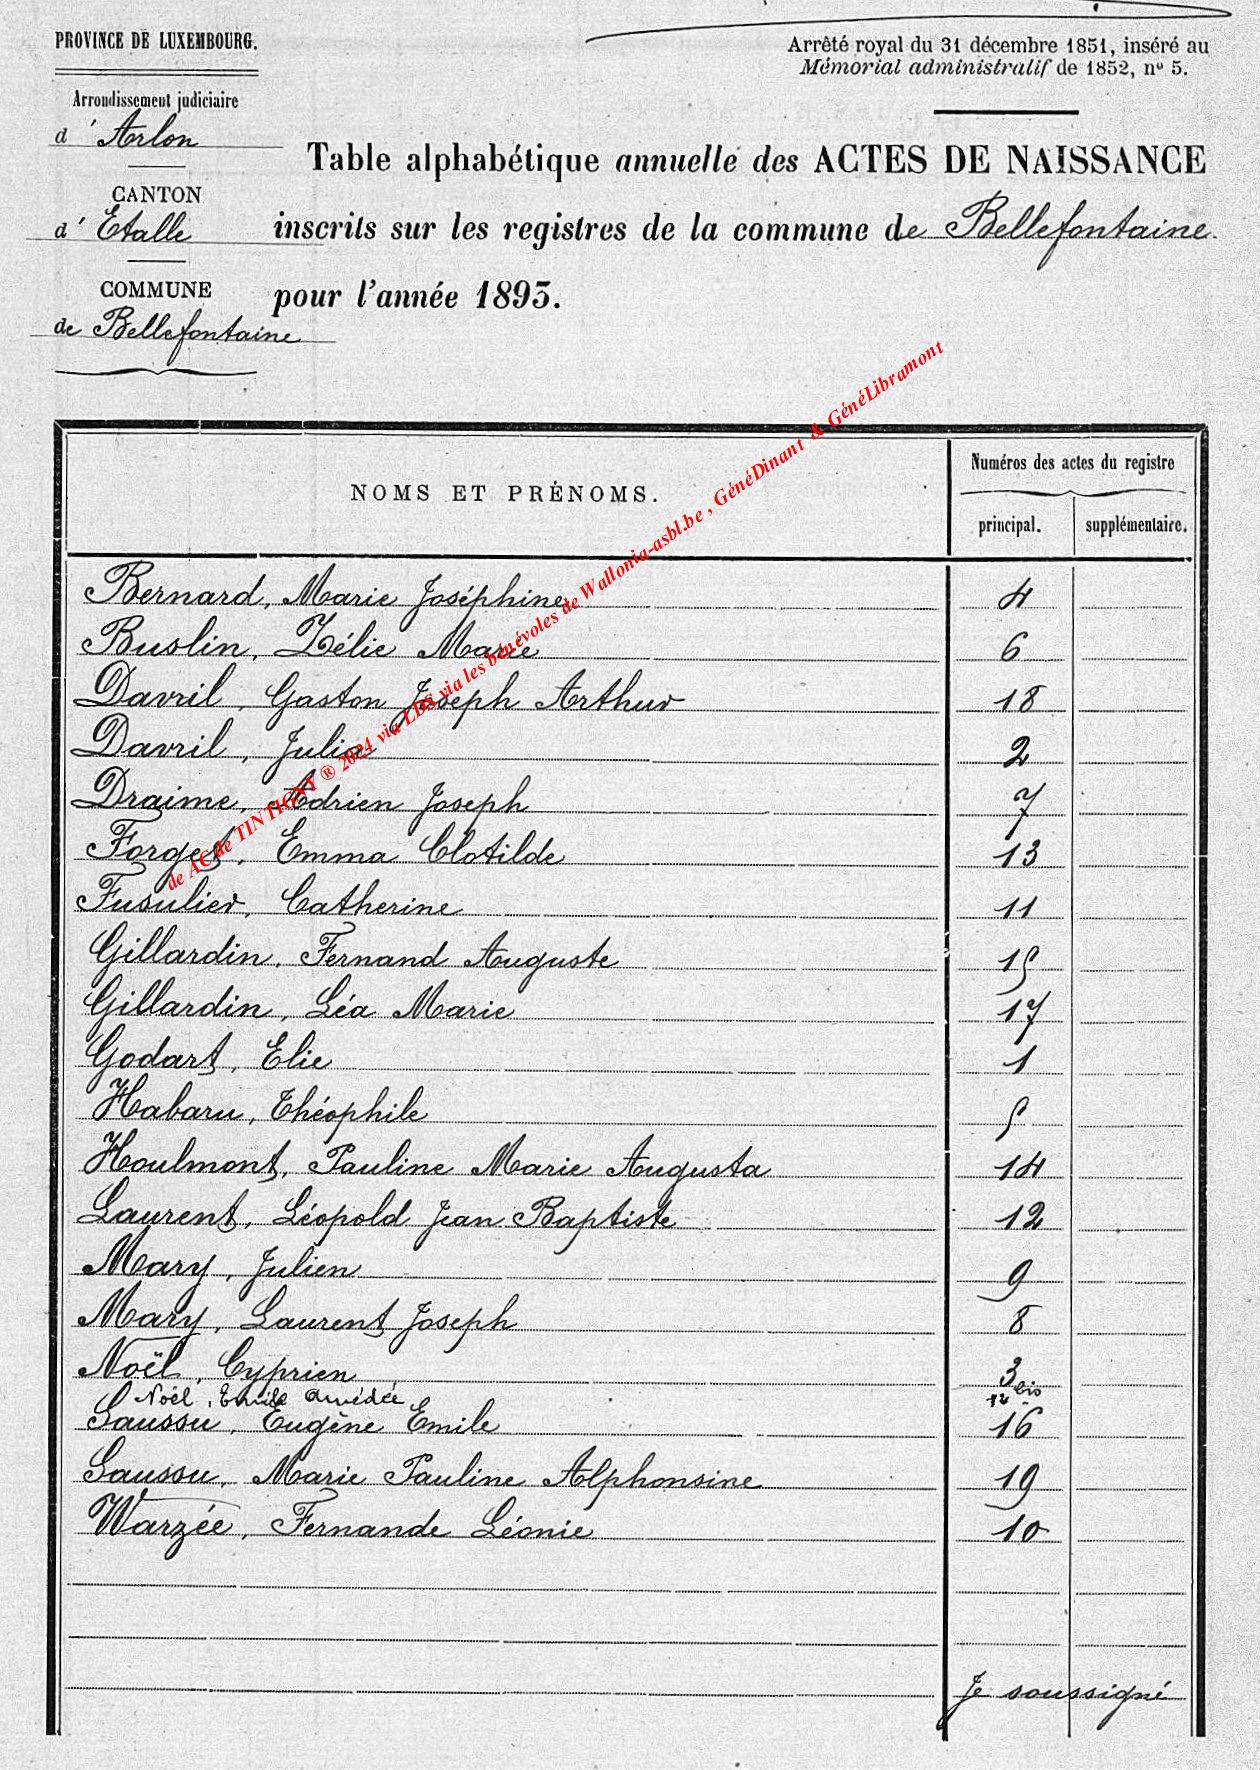 PROVINCE DE LUXEMBOURG.
Arrêté royal du 31 décembre 1851, inséré au
Mémorial administratif de 1852, nº 5.
Arrondissement judiciaire
d'Arlon
CANTON
d'Etalle
COMMUNE
de Bellefontaine
Table alphabétique annuelle des ACTES DE NAISSANCE
inscrits sur les registres de la commune de Bellefontaine
pour l'année 1893.
NOMS ET PRÉNOMS.
Numéros des actes du registre
principal. supplémentaire.
Bernard, Marie Joséphine 4
Buslin, Zélie Marie 6
Davril, Gaston Joseph Arthur 18
Davril, Julia 2
Draime, Adrien Joseph 7
Forget, Emma Clotilde 13
Fusulier, Catherine 11
Gillardin, Fernand Auguste 15
Gillardin, Léa Marie 17
Godart, Elie 1
Habaru, Théophile 5
Houlmont, Pauline Marie Augusta 14
Laurent, Léopold Jean Baptiste 12
Mary, Julien 9
Mary, Laurent Joseph 8
Noël, Cyprien 3
Noël, Emile Amédée 12 bis
Saussu, Eugène Emile 16
Saussu, Marie Pauline Alphonsine 19
Warzée, Fernande Léonie 10
Je soussigné
de AC de TINTIGNY ® 2024 via LDS via les bénévoles de Wallonia-asbl.be , GénéDinant & GénéLibramont